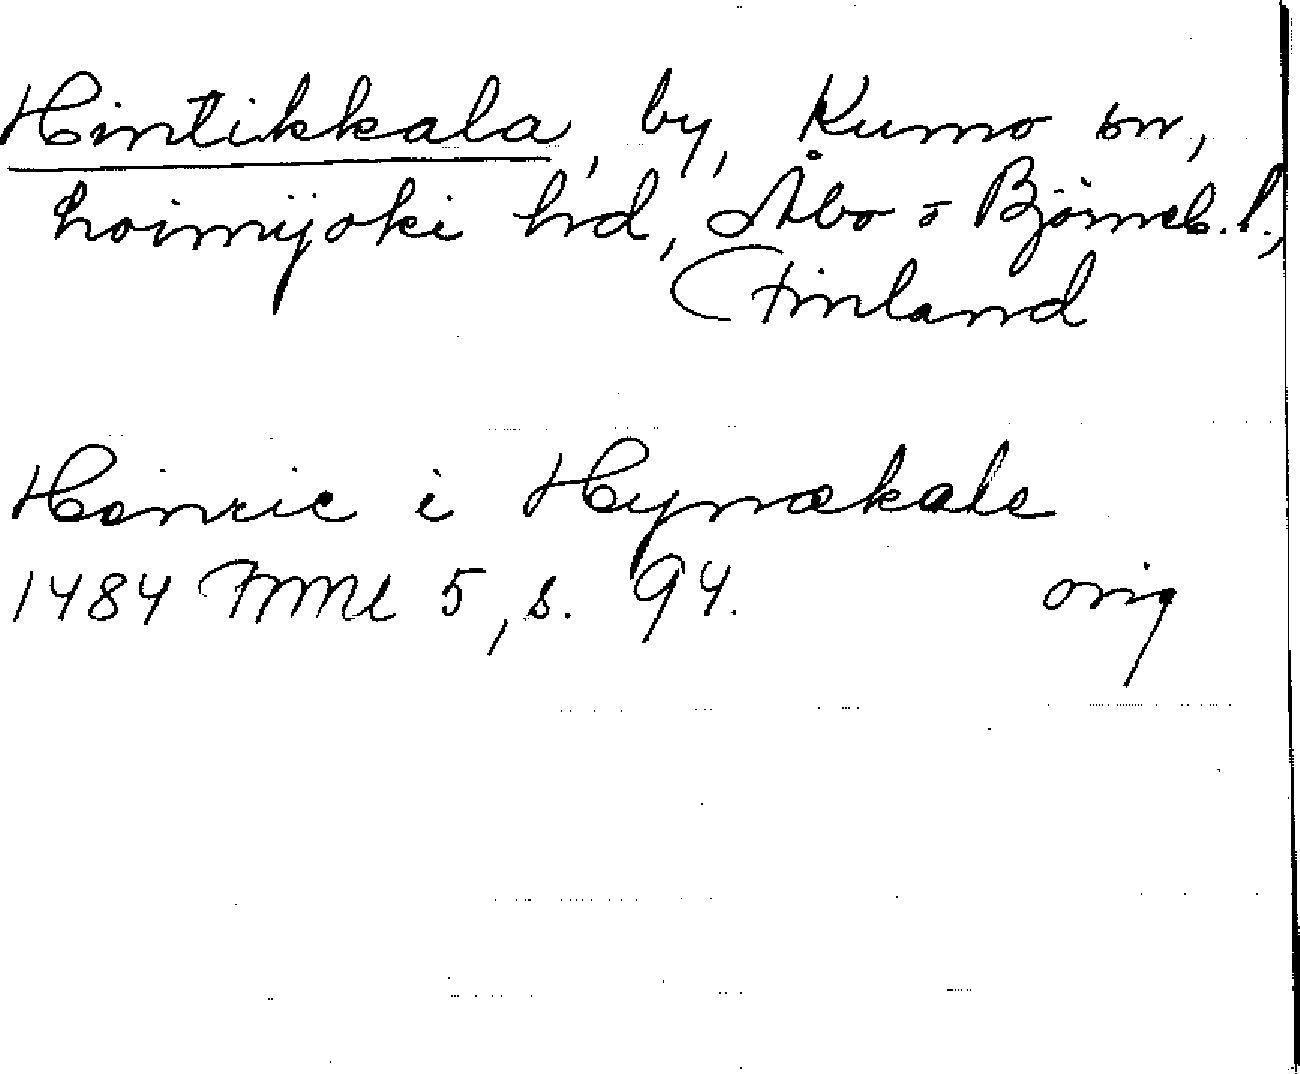 Hintikkala, by, Kumo sn,
Loimijoki hd, Åbo o Björneb. l.,
Finland
Henric i Hynækale
1484 FMU 5, s. 94. orig